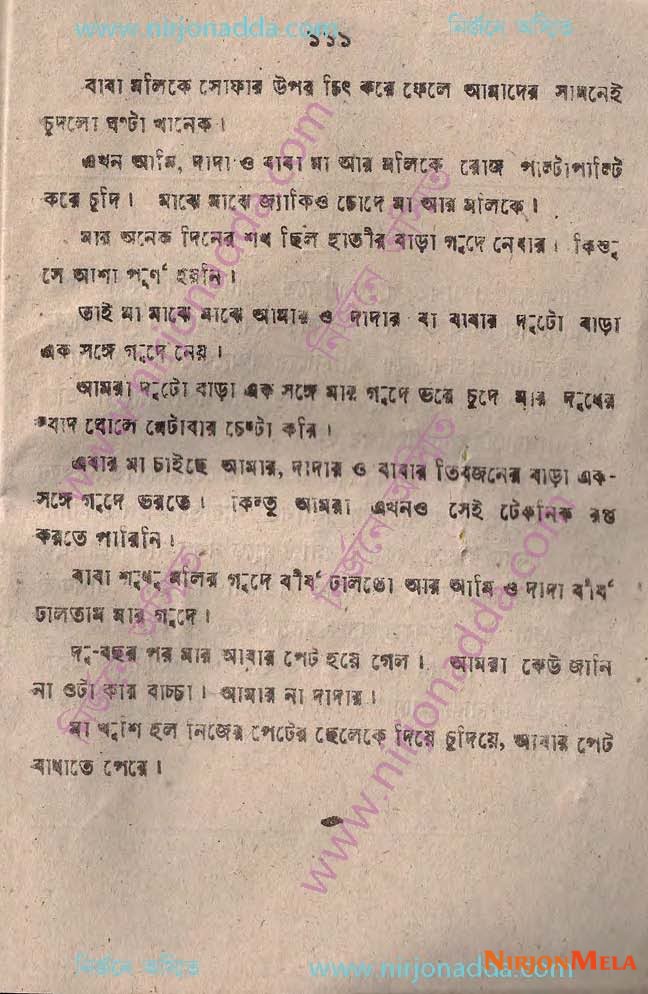 www.nirjonadda.com নির্জনে অসিতে
১১১
বাবা মলিকে সোফার উপর চিৎ করে ফেলে আমাদের সামনেই
চুদলো ঘণ্টা খানেক।
এখন আমি, দাদা ও বাবা মা আর মলিকে রোজ পাল্টাপাল্টি
করে চুদি। মাঝে মাঝে জ্যাকিও চোদে মা আর মলিকে।
মার অনেক দিনের শখ ছিল হাতীর বাড়া গুদে নেবার। কিন্তু
সে আশা পূর্ণ হয়নি।
তাই মা মাঝে মাঝে আমার ও দাদার বা বাবার দুটো বাড়া
এক সঙ্গে গুদে নেয়।
আমরা দুটো বাড়া এক সঙ্গে মার গুদে ভরে চুদে মার দুধের
স্বাদ ঘোলে মেটাবার চেষ্টা করি।
এবার মা চাইছে আমার, দাদার ও বাবার তিনজনের বাড়া এক-
সঙ্গে গুদে ভরতে। কিন্তু আমরা এখনও সেই টেকনিক রপ্ত
করতে পারিনি।
বাবা শুধু মলির গুদে বীর্য ঢালতো আর আমি ও দাদা বীর্য
ঢালতাম মার গুদে।
দু-বছর পর মার আবার পেট হয়ে গেল। আমরা কেউ জানি
না ওটা কার বাচ্চা। আমার না দাদার।
মা খুশি হল নিজের পেটের ছেলেকে দিয়ে চুদিয়ে, আবার পেট
বাধাতে পেরে।
www.nirjonadda.com
www.nirjonadda.com
www.nirjonadda.com
NIRJONMELA